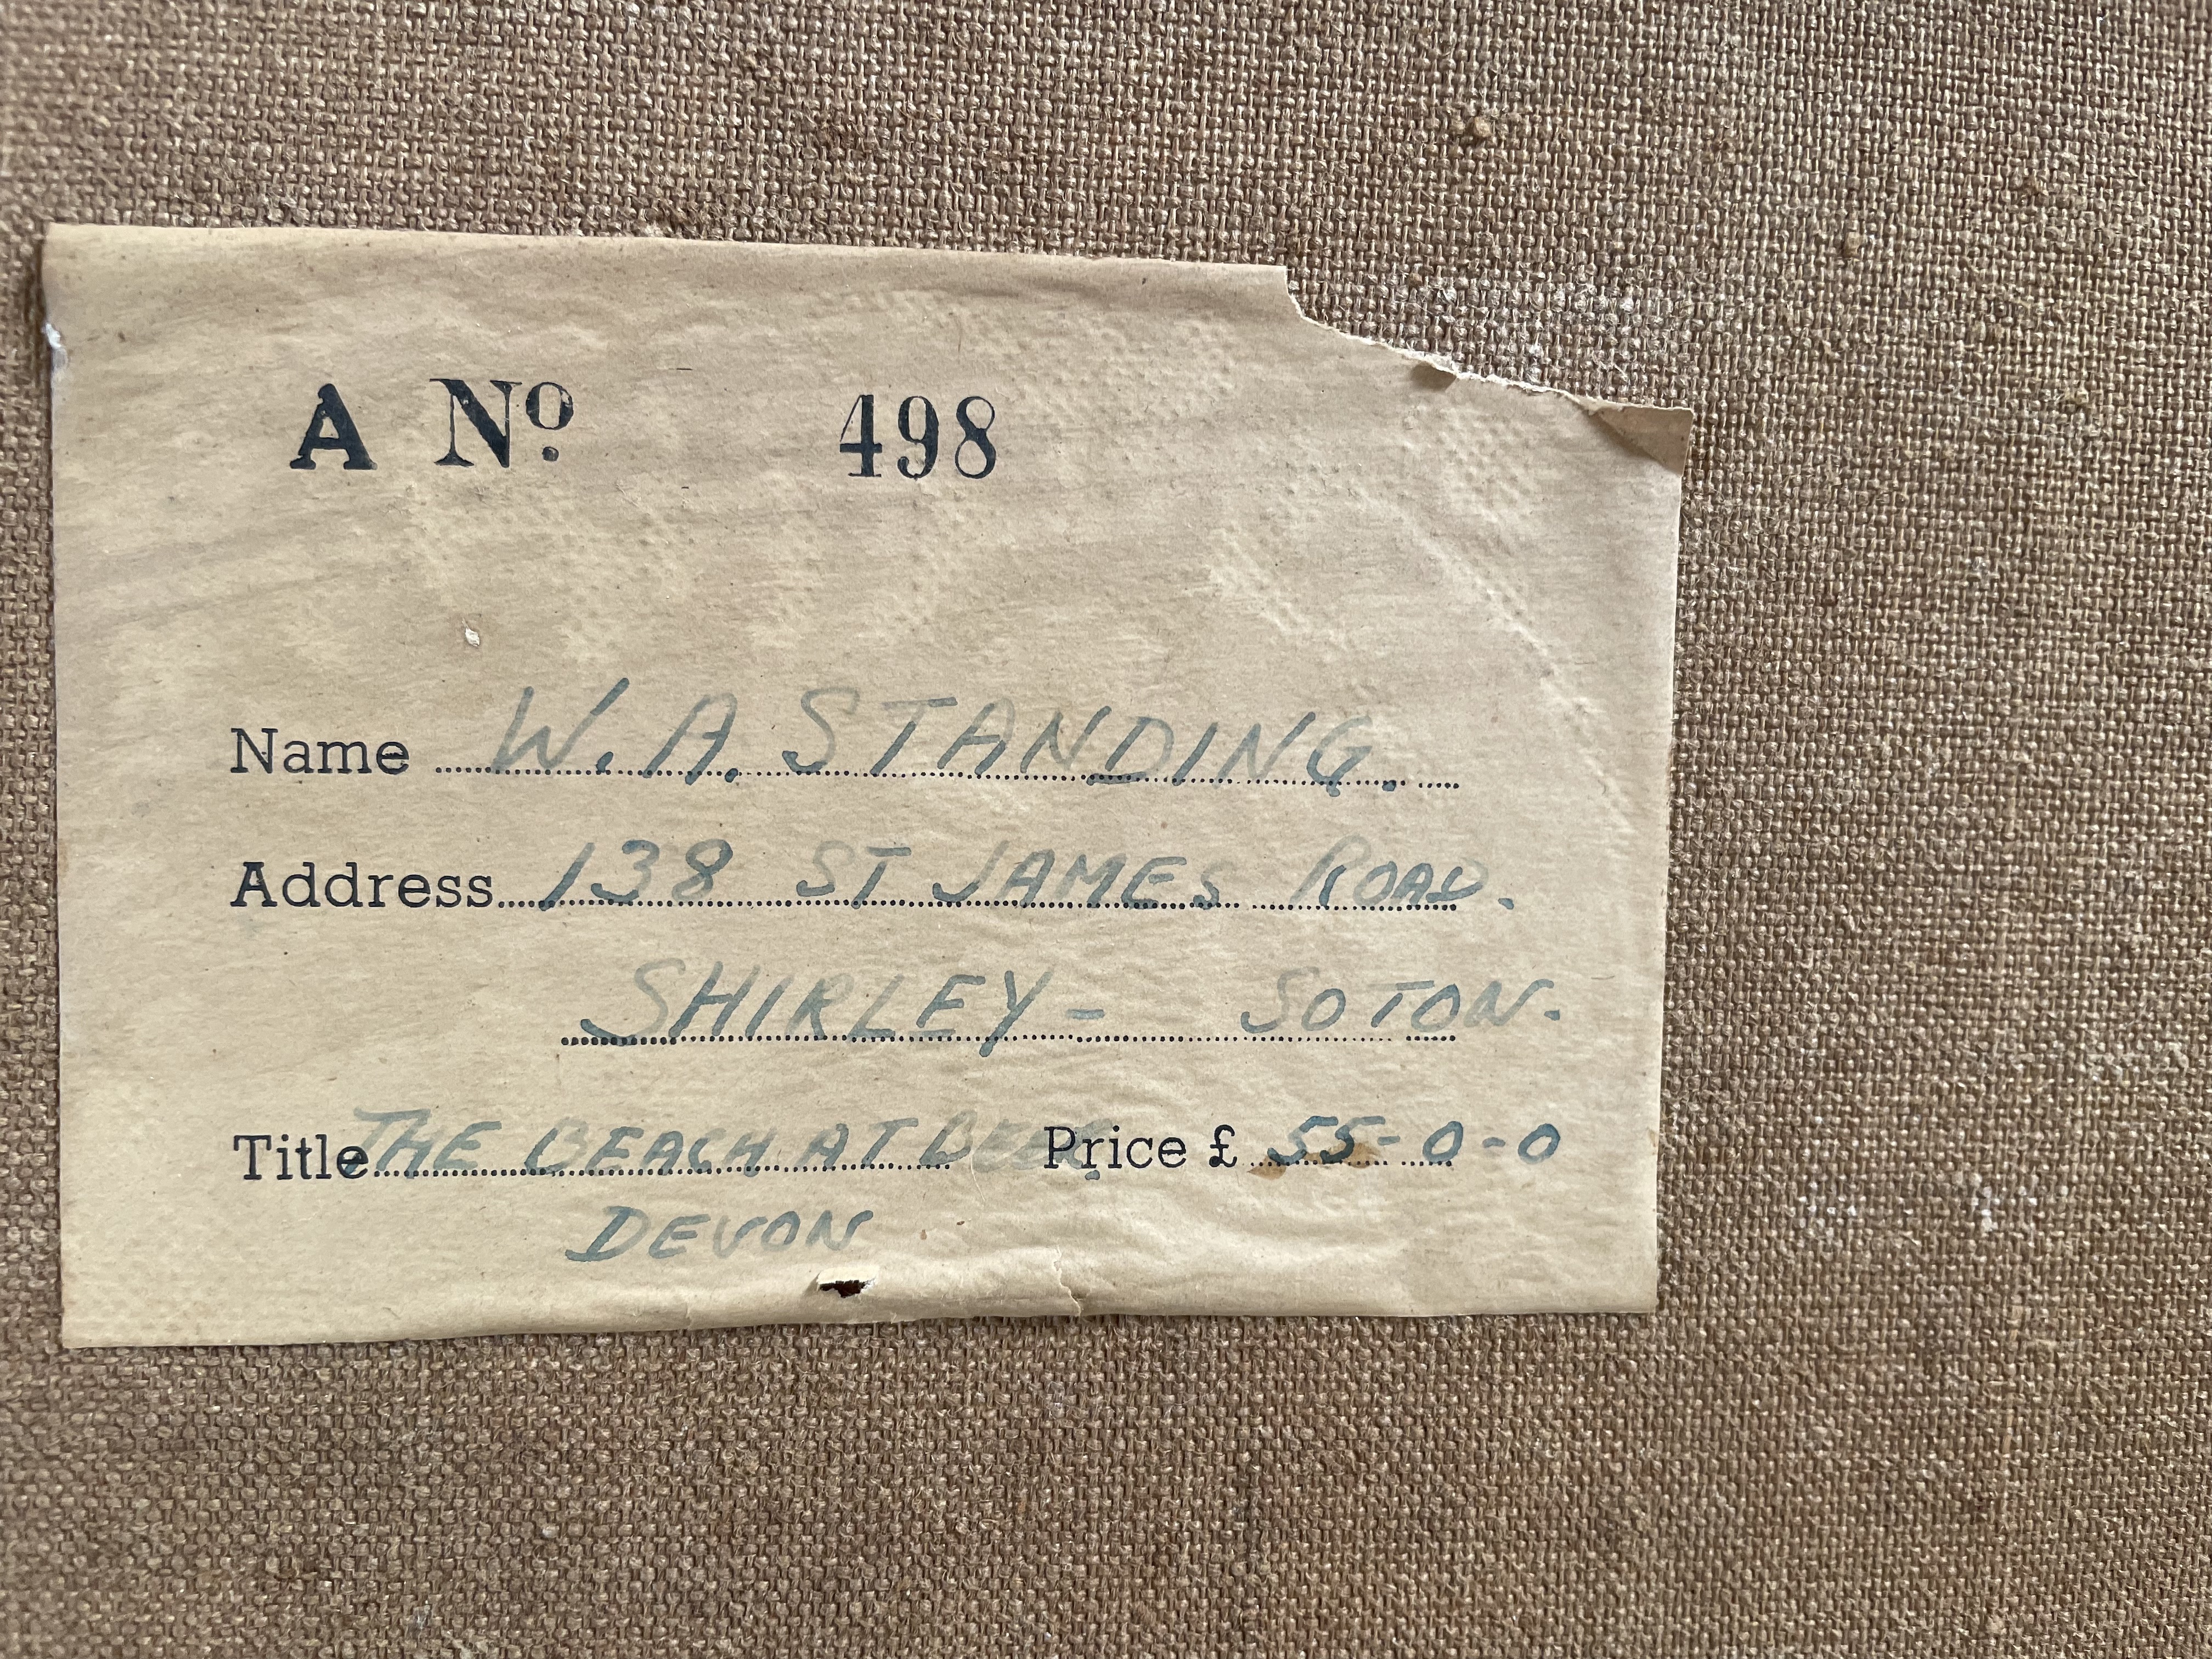 A Nº 498
Name W. A. STANDING.
Address 138 ST JAMES ROAD.
SHIRLEY - SOTON.
Title THE BEACH AT BEER Price £ 55-0-0
DEVON